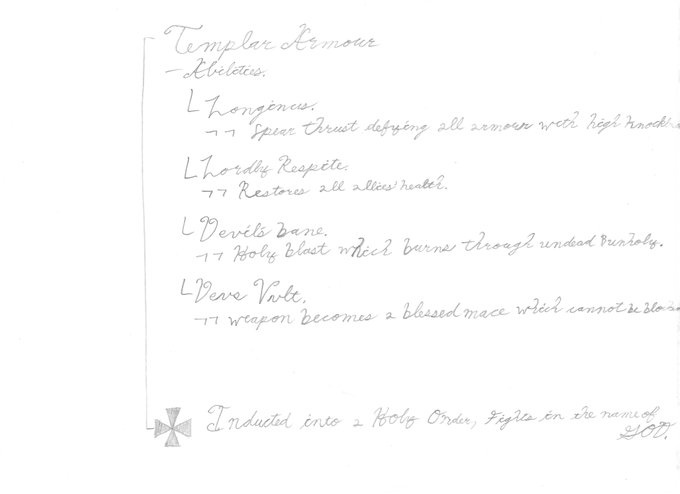 Templar Armour
- Abilities.
Longinus.
Spear thrust defying all armour with high
Lordly Respite.
Restores all allies' health.
Devil's bane.
Holy blast which burns through undead & unholy.
Devs Vvlt.
weapon becomes a blessed mace which cannot be
Inducted into a Holy Order, Fights in the name of
GOD.